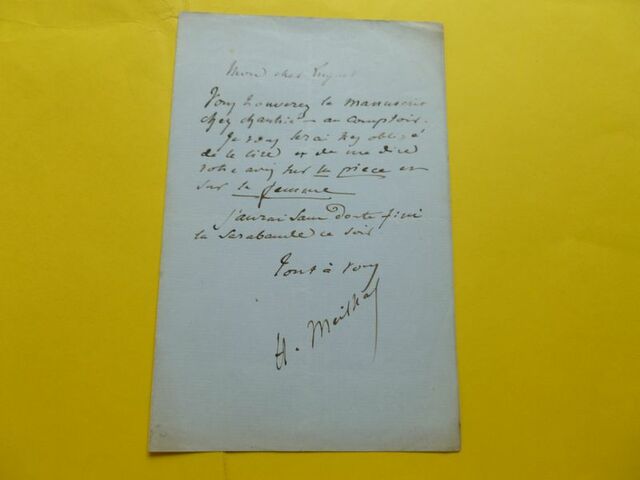 Mon cher
Vous trouverez le manuscrit
chez - au comptoir.
Je vous serai très obligé
de le lire et de me dire
votre avis sur la pièce et
sur la femme
J'aurai sans doute fini
la Sarabande ce soir
Tout à vous
H. Meilhac